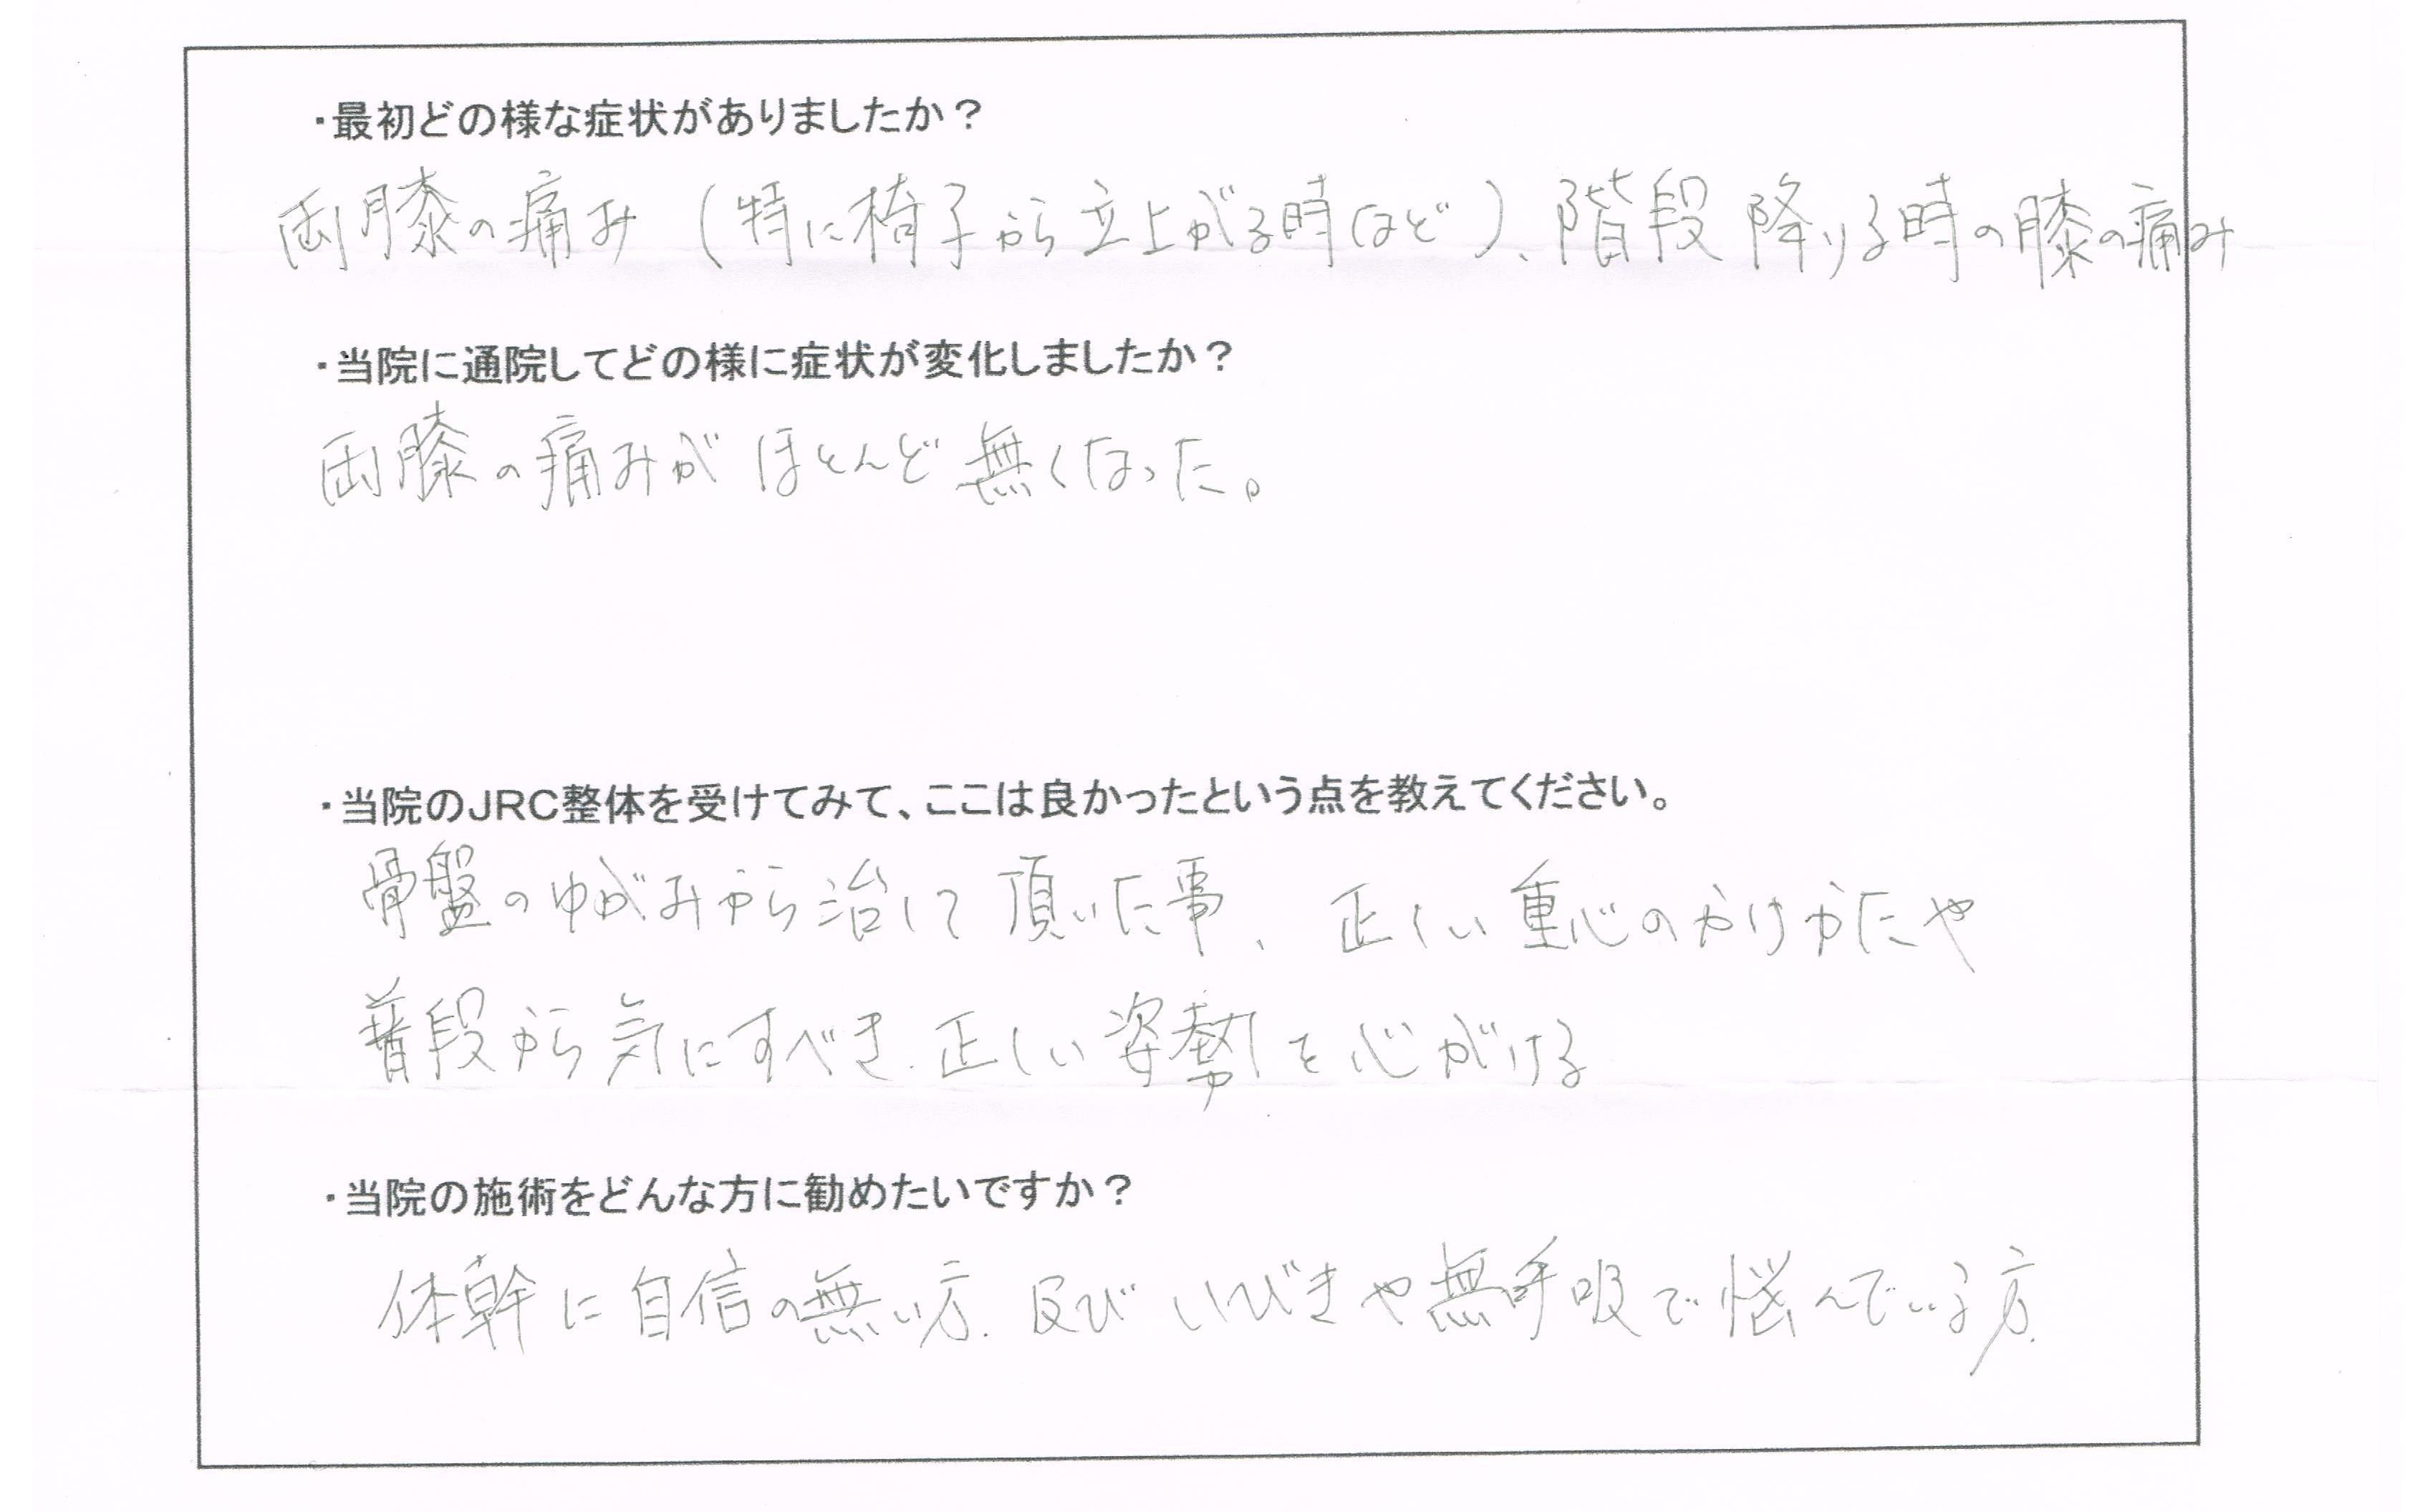 ・最初どの様な症状がありましたか？
両膝の痛み（特に椅子から立上がる時ほど）、階段降りる時の膝の痛み
・当院に通院してどの様に症状が変化しましたか？
両膝の痛みがほとんど無くなった。
・当院のJRC整体を受けてみて、ここは良かったという点を教えてください。
骨盤のゆがみから治して頂いた事、正しい重心のかけかたや
普段から気にすべき正しい姿勢を心がける
・当院の施術をどんな方に勧めたいですか？
体幹に自信の無い方、及びいびきや無呼吸で悩んでいる方